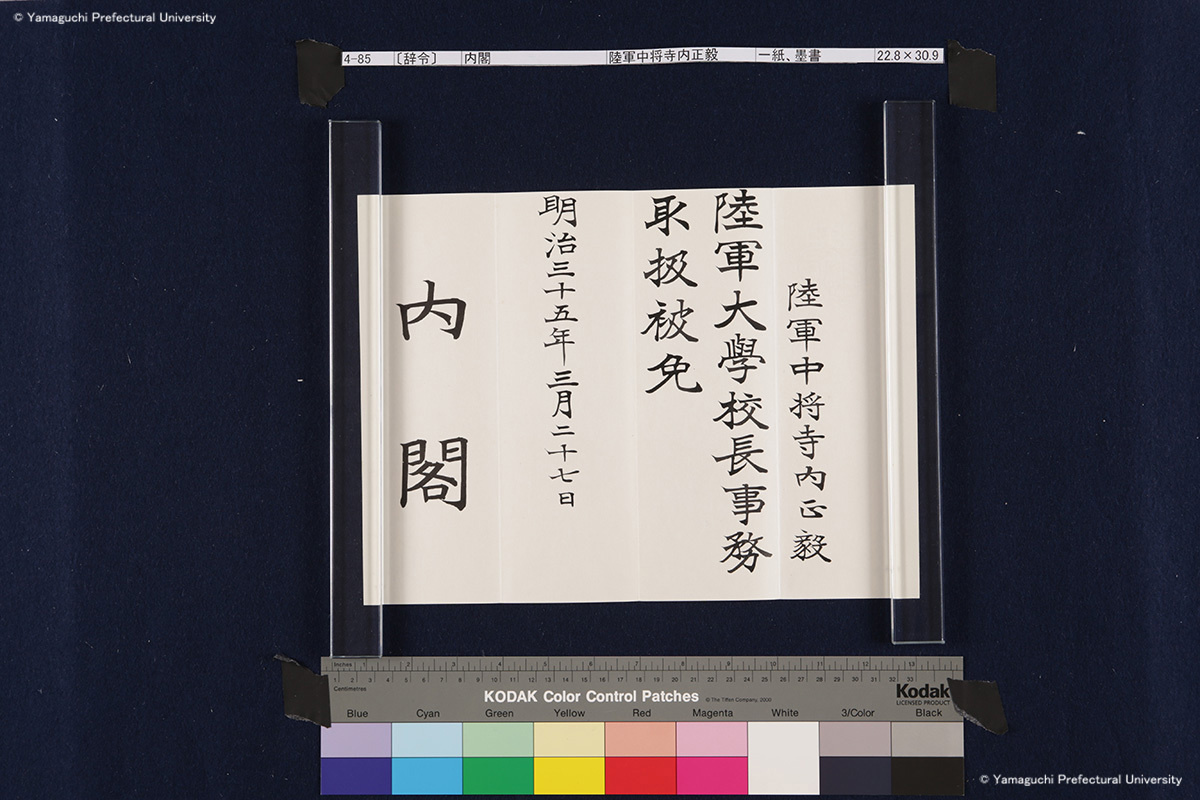 © Yamaguchi Prefectural University
4-85 〔辞令〕 内閣 陸軍中将寺内正毅 一紙、墨書 22.8×30.9
陸軍中将寺内正毅
陸軍大學校長事務
取扱被免
明治三十五年三月二十七日
内閣
Inches 1 2 3 4 5 6 7 8 9 10 11 12 13
1 2 3 4 5 6 7 8 9 10 11 12 13 14 15 16 17 18 19 20 21 22 23 24 25 26 27 28 29 30 31 32 33
Centimetres
KODAK Color Control Patches © The Tiffen Company, 2008
Kodak
LICENSED PRODUCT
Blue Cyan Green Yellow Red Magenta White 3/Color Black
© Yamaguchi Prefectural University